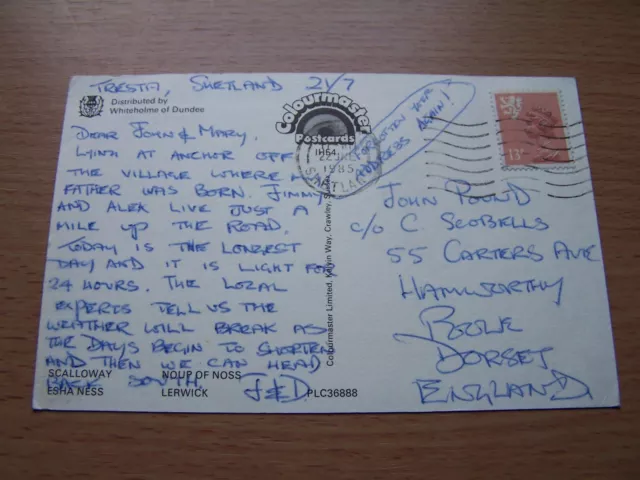 TRESTA, SHETLAND 21/7
Distributed by
Whiteholme of Dundee
Colourmaster
Postcards
IH54
DEAR JOHN & MARY.
LYING AT ANCHOR OFF
THE VILLAGE WHERE MY
FATHER WAS BORN. JIMMY
AND ALEK LIVE JUST A
MILE UP THE ROAD.
TODAY IS THE LONGEST
DAY AND IT IS LIGHT FOR
24 HOURS. THE LOCAL
EXPERTS TELL US THE
WEATHER WILL BREAK AS
THE DAYS BEGIN TO SHORTEN
AND THEN WE CAN HEAD
BACK SOUTH. J&D.
SCALLOWAY NOUP OF NOSS
ESHA NESS LERWICK PLC36888
Colourmaster Limited, Kelvin Way, Crawley,
1985
SHETLAND
FORGOTTEN YOUR
ADDRESS AGAIN!
13P
JOHN POUND
c/o C SCOBELLS
55 CARTERS AVE
HAMWORTHY
POOLE
DORSET
ENGLAND